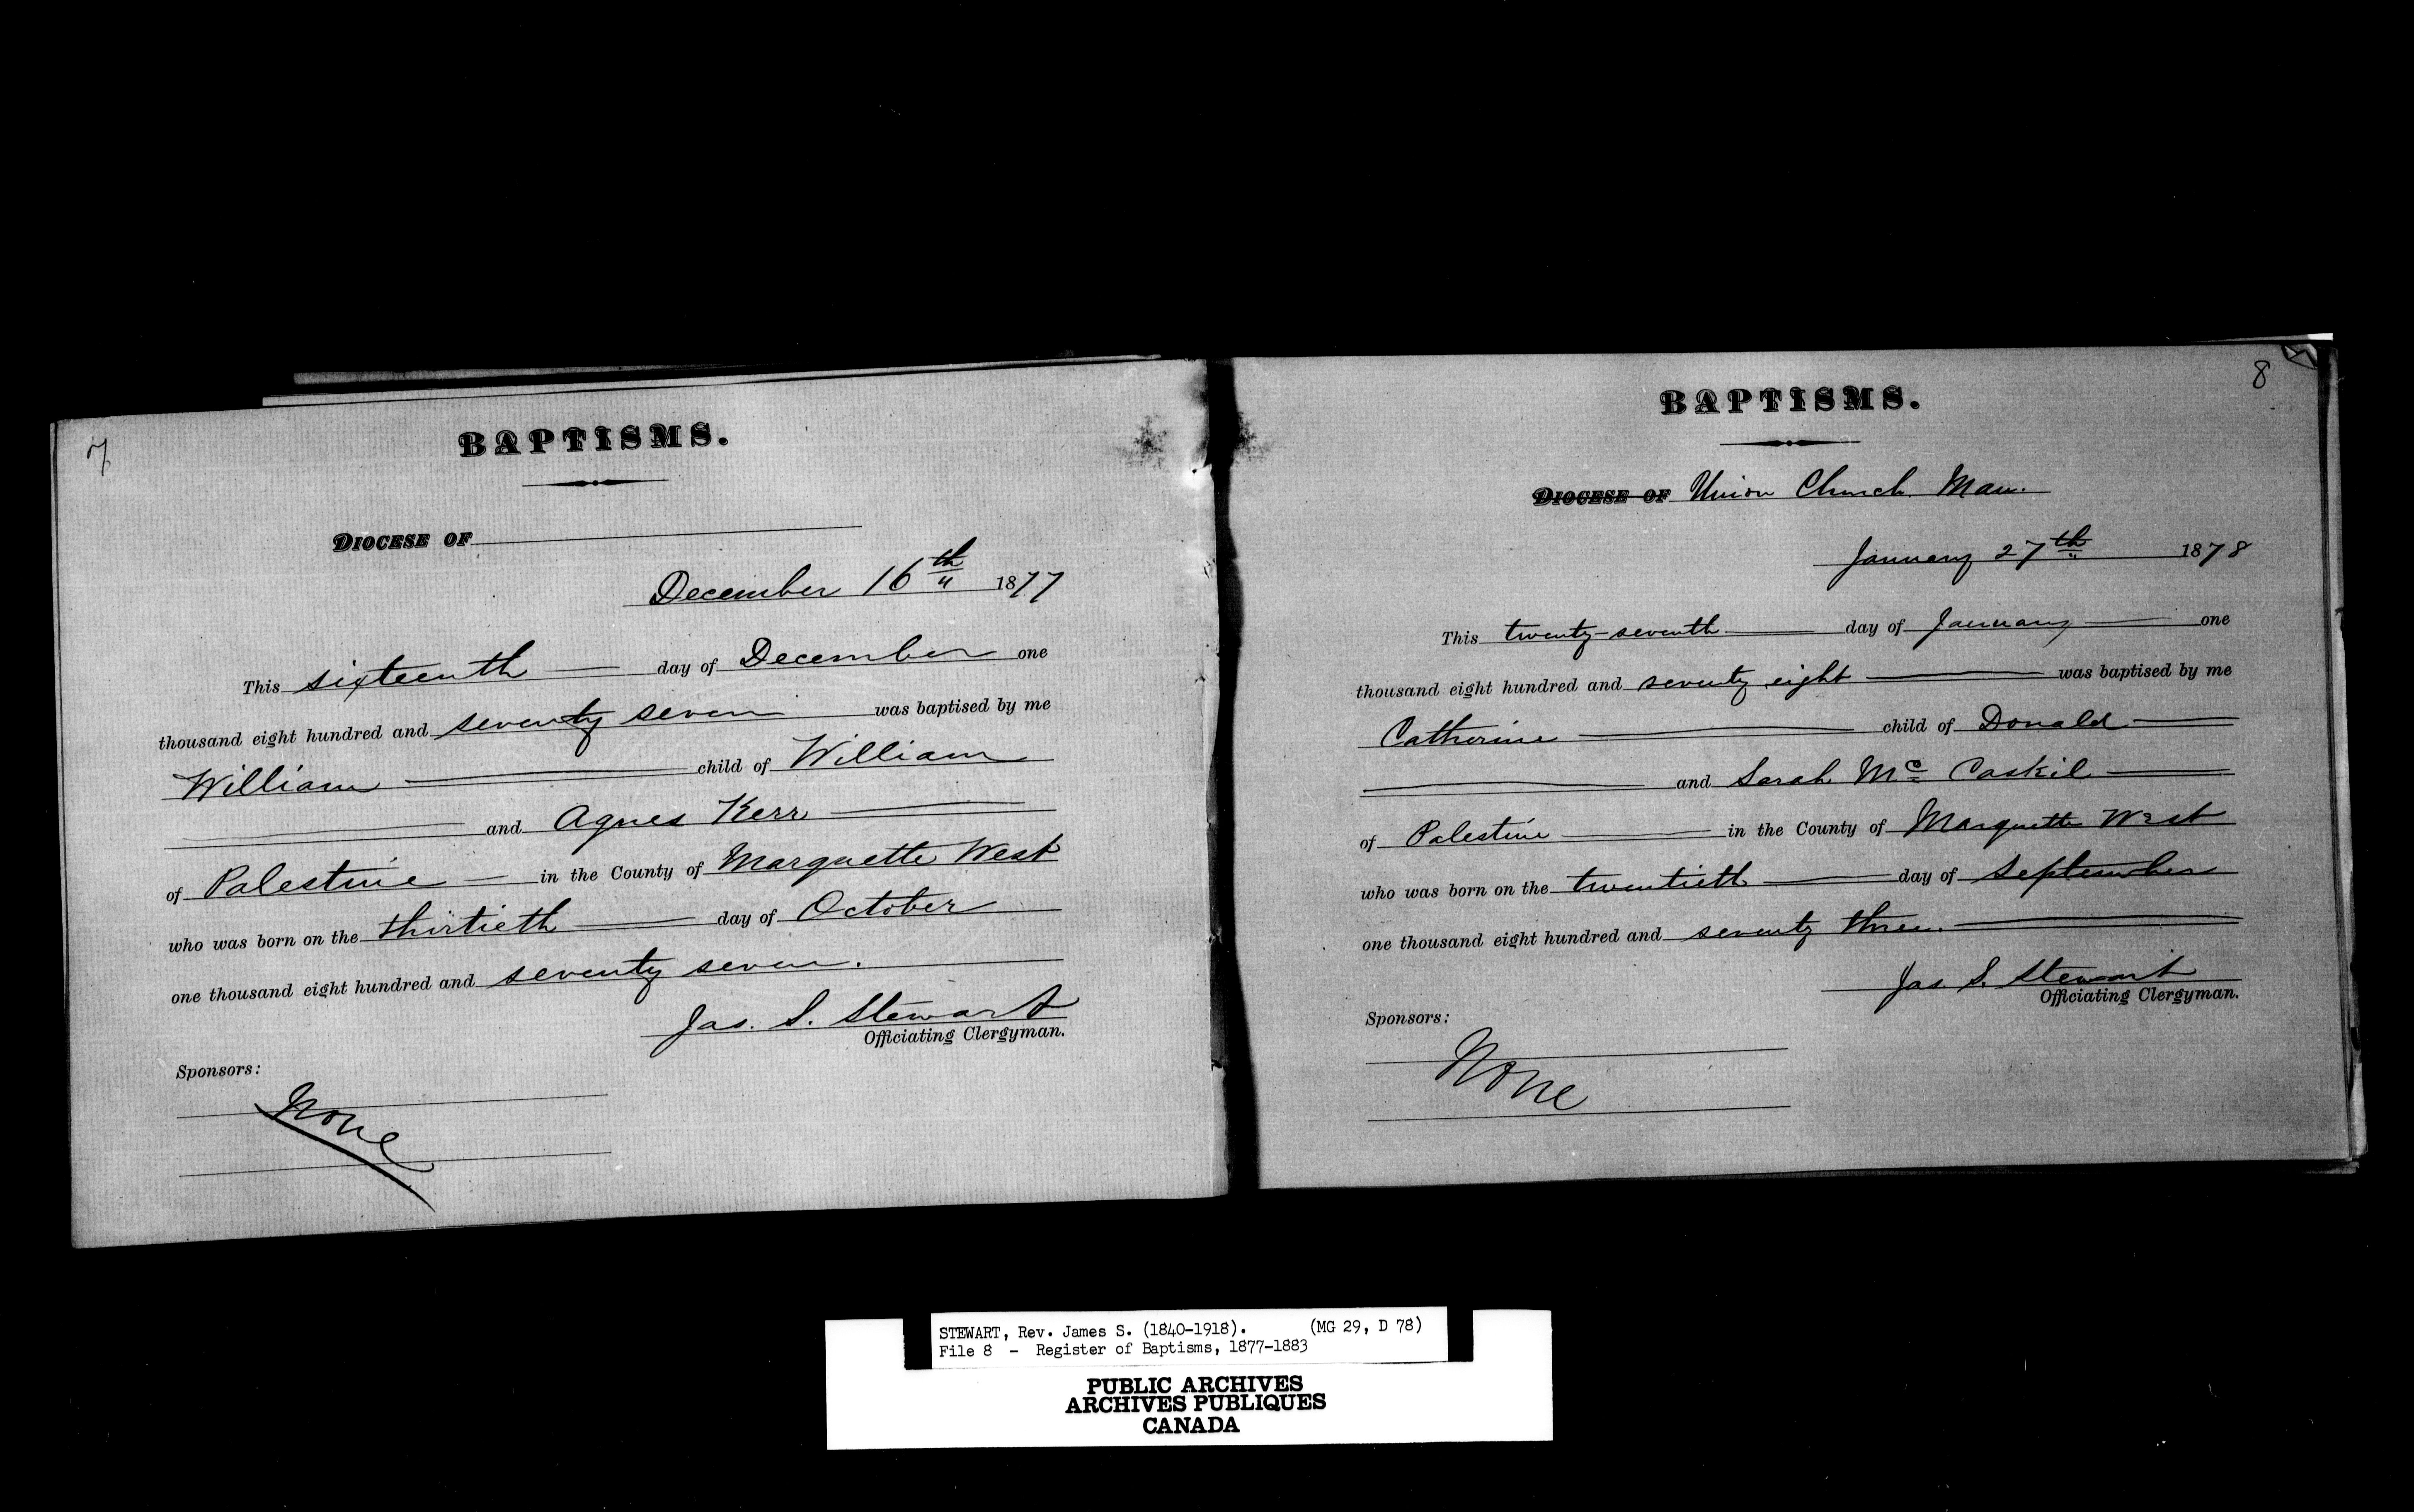 7
BAPTISMS.
DIOCESE OF
December 16th 1877
This sixteenth day of December one
thousand eight hundred and seventy seven was baptised by me
William child of William
and Agnes Kerr
of Palestine in the County of Marquette West
who was born on the thirtieth day of October
one thousand eight hundred and seventy seven.
Jas. S. Stewart
Officiating Clergyman.
Sponsors:
None
8
BAPTISMS.
DIOCESE OF Union Church. Man.
January 27th 1878
This twenty-seventh day of January one
thousand eight hundred and seventy eight was baptised by me
Catherine child of Donald
and Sarah Mc Caskil
of Palestine in the County of Marquette West
who was born on the twentieth day of September
one thousand eight hundred and seventy three.
Jas. S. Stewart
Officiating Clergyman.
Sponsors:
None
STEWART, Rev. James S. (1840-1918). (MG 29, D 78)
File 8 - Register of Baptisms, 1877-1883
PUBLIC ARCHIVES
ARCHIVES PUBLIQUES
CANADA